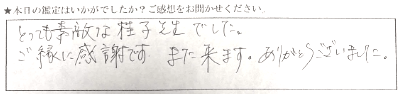 ★本日の鑑定はいかがでしたか？ご感想をお聞かせください。
とっても素敵な桂子先生でした。
ご縁に感謝です。また来ます。ありがとうございました。